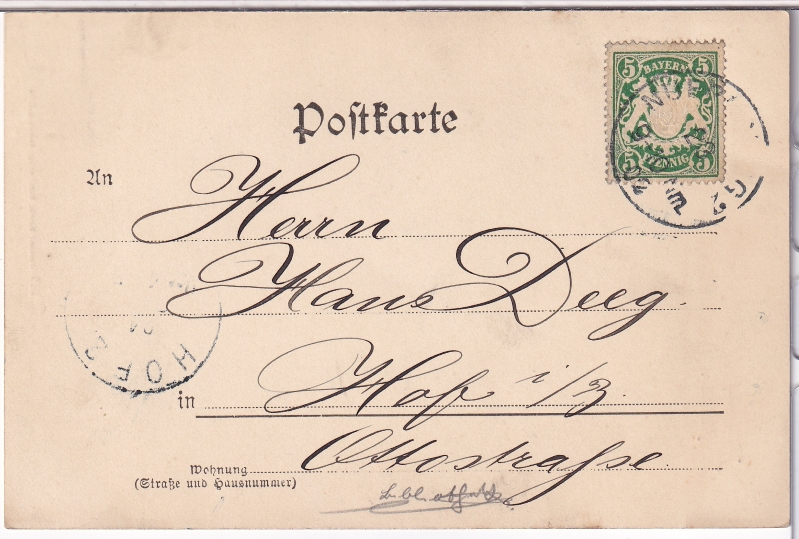 5 BAYERN 5
5 PFENNIG 5
Postkarte
An
Herrn
Hans Deeg.
HOF 2
in Hof i/3.
Wohnung Ottostraße.
(Straße und Hausnummer)